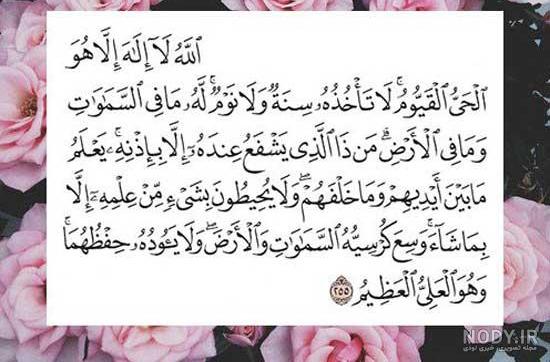 ٱللَّهُ لَآ إِلَٰهَ إِلَّا هُوَ
ٱلْحَىُّ ٱلْقَيُّومُ ۚ لَا تَأْخُذُهُۥ سِنَةٌ وَلَا نَوْمٌ ۚ لَّهُۥ مَا فِى ٱلسَّمَٰوَٰتِ
وَمَا فِى ٱلْأَرْضِ ۗ مَن ذَا ٱلَّذِى يَشْفَعُ عِندَهُۥٓ إِلَّا بِإِذْنِهِۦ ۚ يَعْلَمُ
مَا بَيْنَ أَيْدِيهِمْ وَمَا خَلْفَهُمْ ۖ وَلَا يُحِيطُونَ بِشَىْءٍ مِّنْ عِلْمِهِۦٓ إِلَّا
بِمَا شَآءَ ۚ وَسِعَ كُرْسِيُّهُ ٱلسَّمَٰوَٰتِ وَٱلْأَرْضَ ۖ وَلَا يَـُٔودُهُۥ حِفْظُهُمَا ۚ
وَهُوَ ٱلْعَلِىُّ ٱلْعَظِيمُ ٢٥٥
NODY.IR
مجله تصویری، خبری نودی